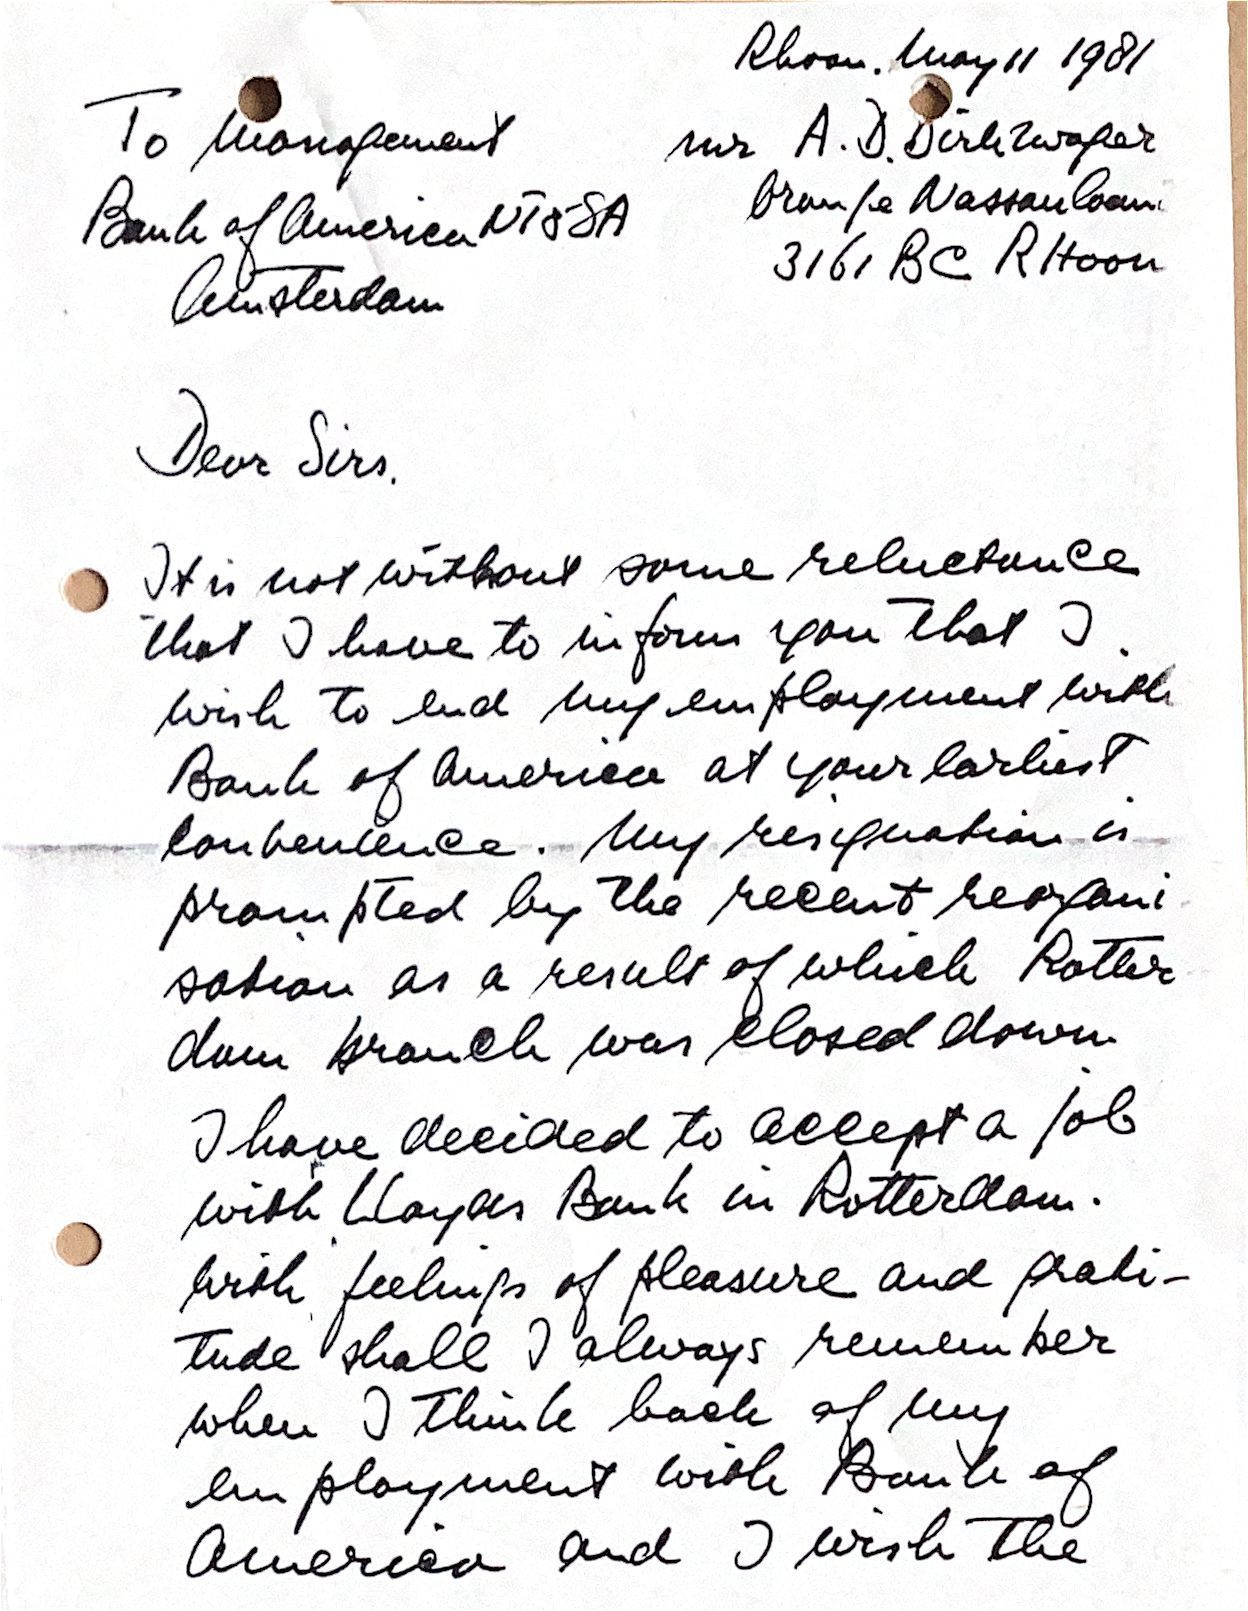 Rhoon. May 11 1981
To Management
Bank of America NT & SA
Amsterdam
mr A. D. Dirkzwager
Oranje Nassaulaan
3161 BC RHoon
Dear Sirs.
It is not without some reluctance
that I have to inform you that I
wish to end my employment with
Bank of America at your earliest
convenience. My resignation is
prompted by the recent reorgani
sation as a result of which Rotter
dam branch was closed down
I have decided to accept a job
with Lloyds Bank in Rotterdam.
With feelings of pleasure and grati-
tude shall I always remember
when I think back of my
employment with Bank of
America and I wish the